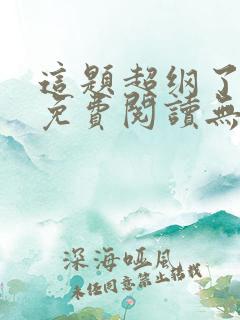 這題超纲了
免費閱讀無
深海哑風
未径同意禁止转载